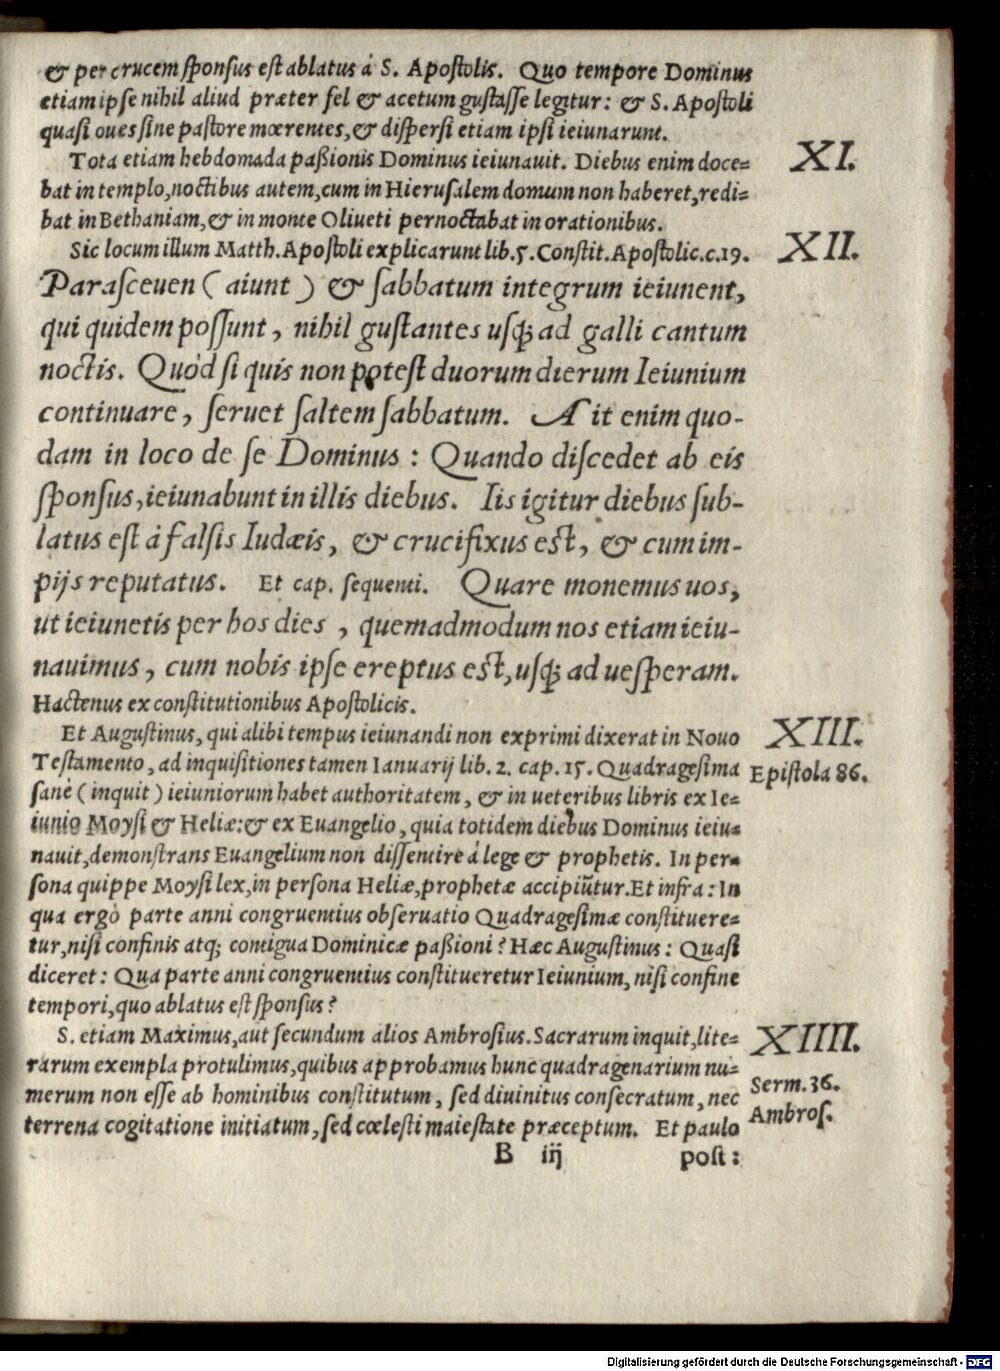 & per crucem ſponſus eſt ablatus à S. Apoſtolis. Quo tempore Dominus
etiam ipſe nihil aliud præter fel & acetum guſtaſſe legitur: & S. Apoſtoli
quaſi oues ſine paſtore mœrentes, & diſperſi etiam ipſi ieiunarunt.
Tota etiam hebdomada paßionis Dominus ieiunauit. Diebus enim doce=
XI.
bat in templo, noctibus autem, cum in Hieruſalem domum non haberet, redi=
bat in Bethaniam, & in monte Oliueti pernoctabat in orationibus.
Sic locum illum Matth. Apoſtoli explicarunt lib. 5. Conſtit. Apoſtolic. c. 19.
XII.
Paraſceuen ( aiunt ) & ſabbatum integrum ieiunent,
qui quidem poſſunt, nihil guſtantes uſq; ad galli cantum
noctis. Quòd ſi quis non poteſt duorum dierum Ieiunium
continuare, ſeruet ſaltem ſabbatum. Ait enim quo-
dam in loco de ſe Dominus : Quando diſcedet ab eis
ſponſus, ieiunabunt in illis diebus. Iis igitur diebus ſub-
latus eſt à falſis Iudæis, & crucifixus eſt, & cum im-
pijs reputatus. Et cap. ſequenti. Quare monemus uos,
ut ieiunetis per hos dies , quemadmodum nos etiam ieiu-
nauimus, cum nobis ipſe ereptus eſt, uſq; ad ueſperam.
Hactenus ex conſtitutionibus Apoſtolicis.
Et Auguſtinus, qui alibi tempus ieiunandi non exprimi dixerat in Nouo
XIII.
Teſtamento, ad inquiſitiones tamen Ianuarij lib. 2. cap. 15. Quadrageſima
Epiſtola 86.
ſane ( inquit ) ieiuniorum habet authoritatem, & in ueteribus libris ex Ie=
iunio Moyſi & Heliæ: & ex Euangelio, quia totidem diebus Dominus ieiu=
nauit, demonſtrans Euangelium non diſſentire à lege & prophetis. In per=
ſona quippe Moyſi lex, in perſona Heliæ, prophetæ accipiũtur. Et infra : In
qua ergò parte anni congruentius obſeruatio Quadrageſimæ conſtituere=
tur, niſi confinis atq; contigua Dominicæ paßioni ? Hæc Auguſtinus : Quaſi
diceret : Qua parte anni congruentius conſtitueretur Ieiunium, niſi confine
tempori, quo ablatus eſt ſponſus ?
S. etiam Maximus, aut ſecundum alios Ambroſius. Sacrarum inquit, lite=
XIIII.
rarum exempla protulimus, quibus approbamus hunc quadragenarium nu=
Serm. 36.
merum non eſſe ab hominibus conſtitutum, ſed diuinitus conſecratum, nec
Ambroſ.
terrena cogitatione initiatum, ſed cœleſti maieſtate præceptum. Et paulo
B iij
poſt :
Digitalisierung gefördert durch die Deutsche Forschungsgemeinschaft - DFG